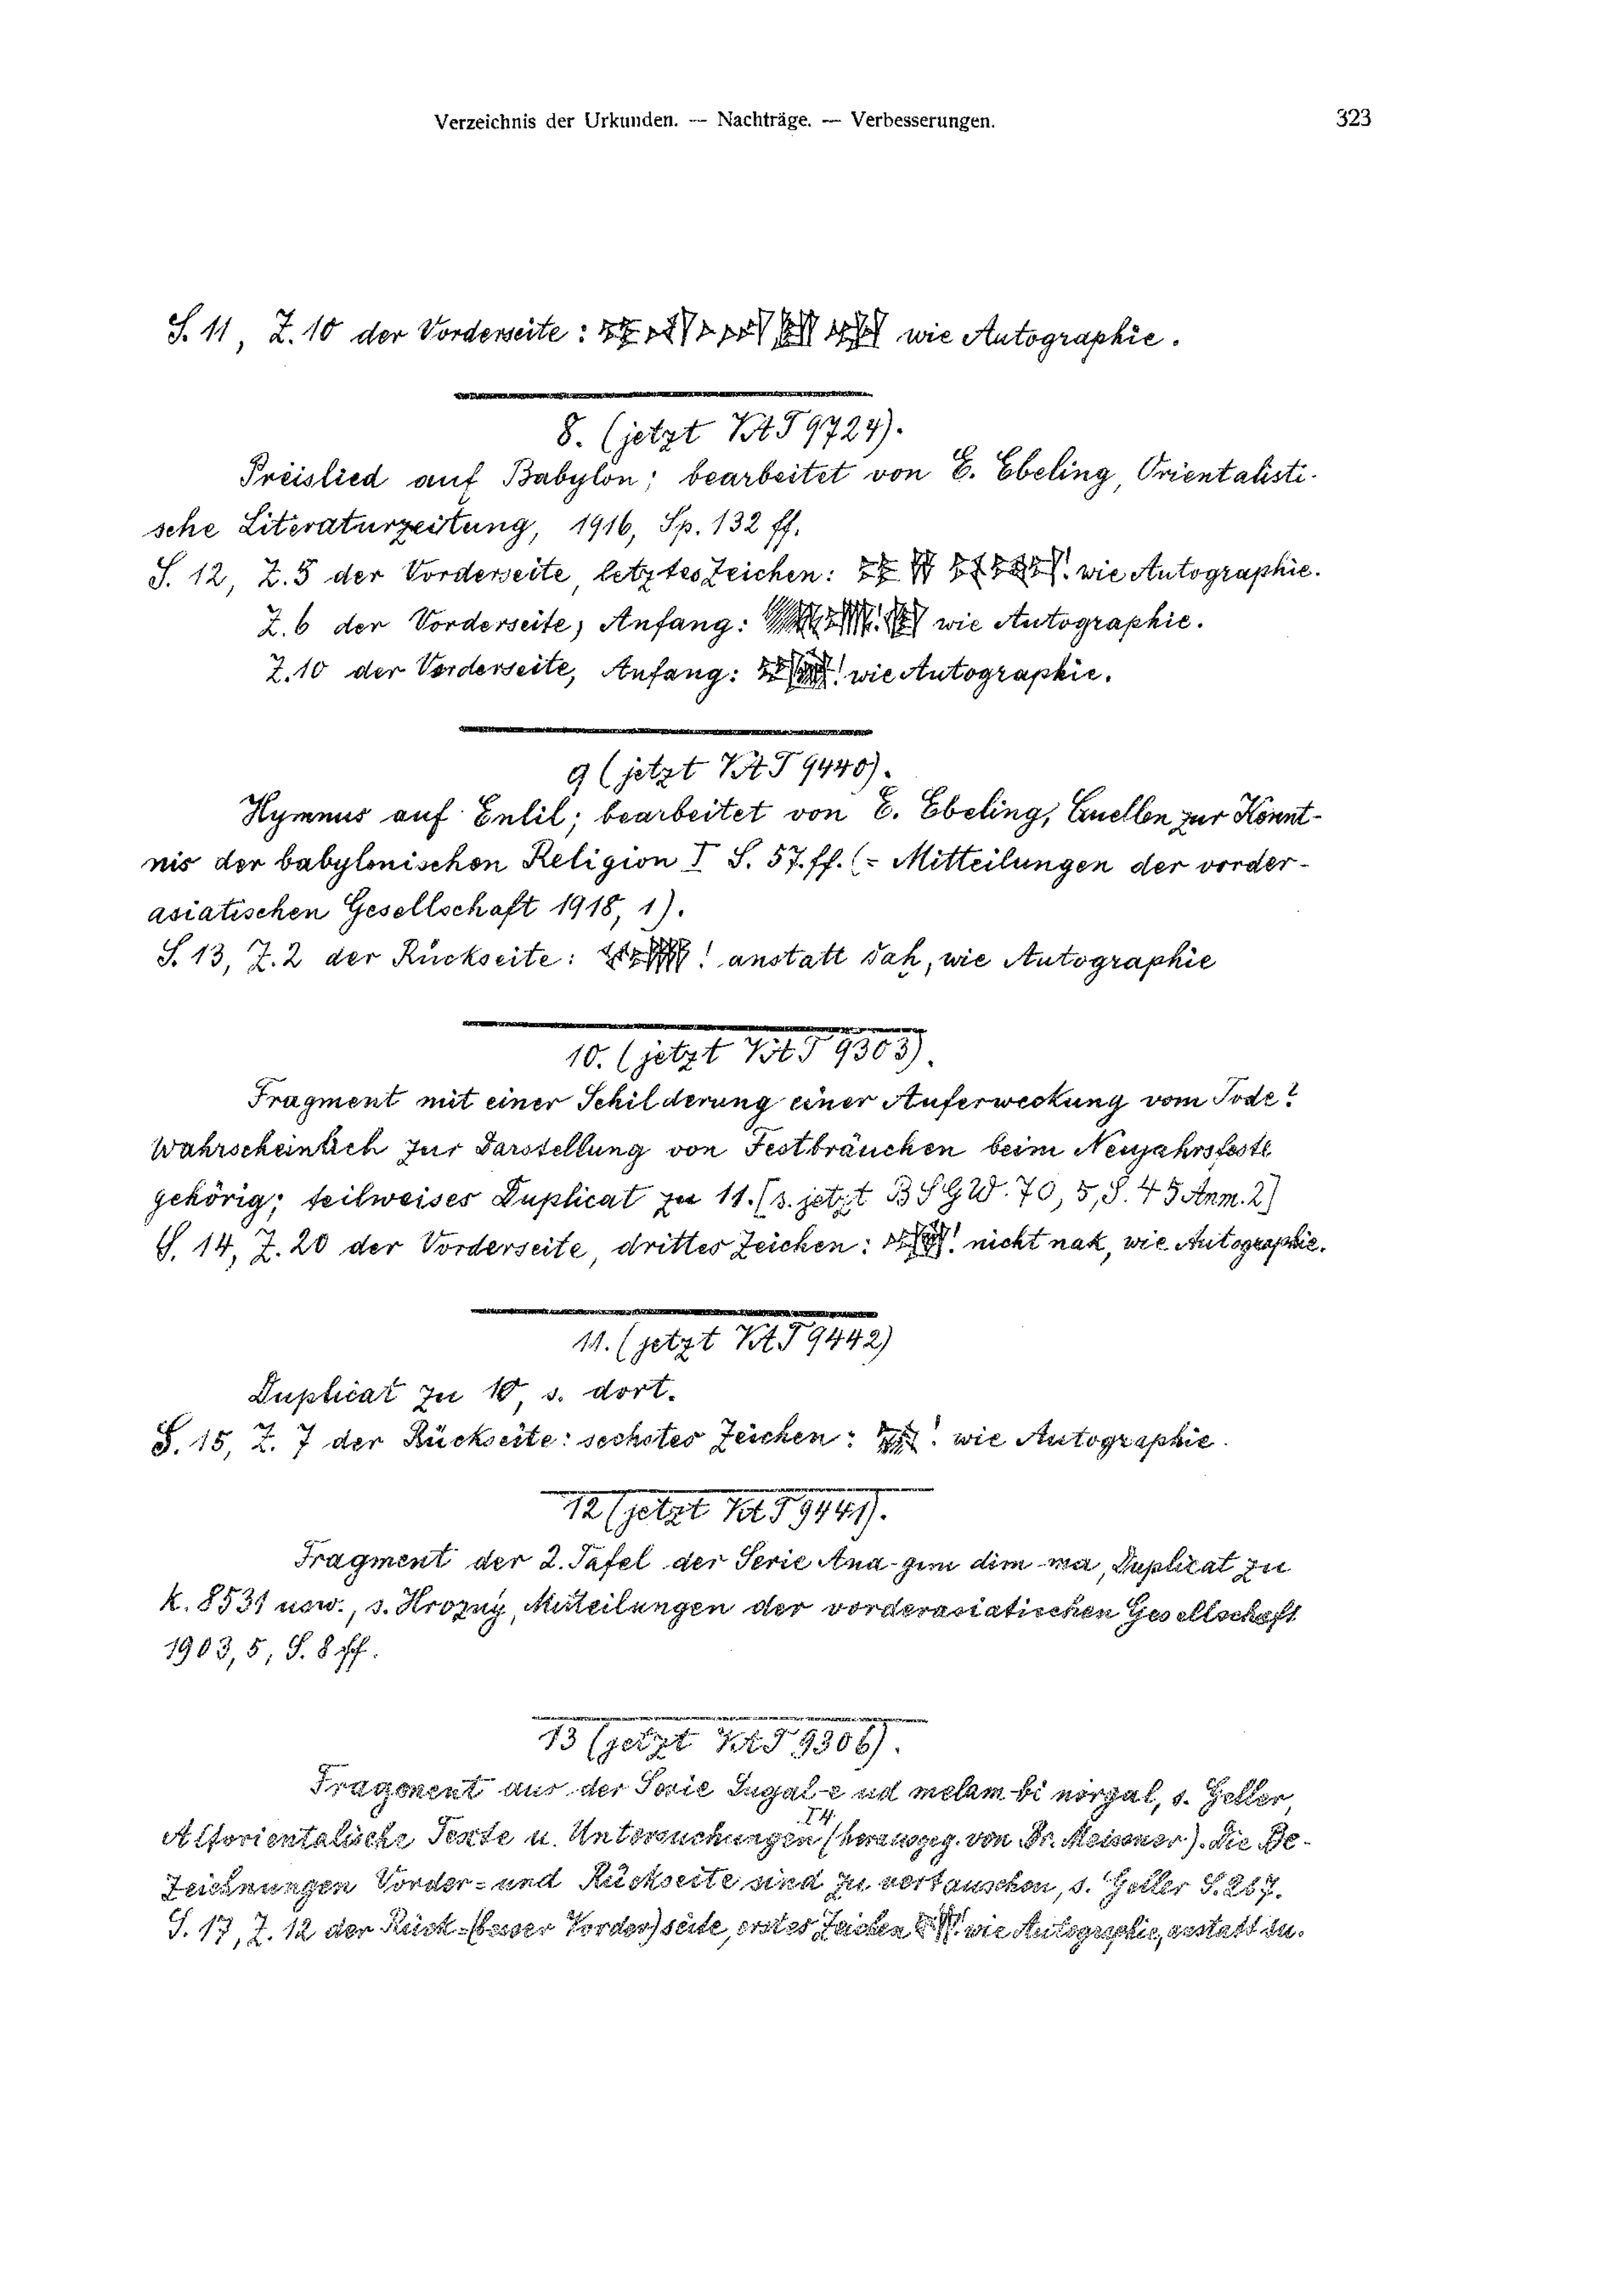 Verzeichnis der Urkunden. — Nachträge. — Verbesserungen. 323
S. 11, Z. 10 der Vorderseite: wie Autographie.
8. (jetzt VAT 9724).
Preislied auf Babylon; bearbeitet von E. Ebeling, Orientalisti-
sche Literaturzeitung, 1916, Sp. 132 ff.
S. 12, Z. 5 der Vorderseite, letztes Zeichen: ! wie Autographie.
Z. 6 der Vorderseite, Anfang: wie Autographie.
Z. 10 der Vorderseite, Anfang: ! wie Autographie.
9 (jetzt VAT 9440).
Hymnus auf Enlil; bearbeitet von E. Ebeling, Quellen zur Kennt-
nis der babylonischen Religion I S. 57. ff. (= Mitteilungen der vorder-
asiatischen Gesellschaft 1918, 1).
S. 13, Z. 2 der Rückseite: ! anstatt šaḫ, wie Autographie
10. (jetzt VAT 9303).
Fragment mit einer Schilderung einer Auferweckung vom Tode?
Wahrscheinlich zur Darstellung von Festbräuchen beim Neujahrsfeste
gehörig; teilweises Duplicat zu 11. (s. jetzt BSGW. 70, 5, S. 45 Anm. 2)
S. 14, Z. 20 der Vorderseite, drittes Zeichen: ! nicht nak, wie Autographie.
11. (jetzt VAT 9442)
Duplicat zu 10, s. dort.
S. 15, Z. 7 der Rückseite: sechstes Zeichen: ! wie Autographie.
12 (jetzt VAT 9441).
Fragment der 2. Tafel der Serie Ana-gim dim-ma, Duplicat zu
K. 8531 usw., s. Hrozný, Mitteilungen der vorderasiatischen Gesellschaft
1903, 5, S. 8 ff.
13 (jetzt VAT 9306).
Fragment aus der Serie Lugal-e ud melam-bi nergal, s. Geller,
Altorientalische Texte u. Untersuchungen I 4. (herausgeg. von Br. Meissner). Die Be-
zeichnungen Vorder- und Rückseite sind zu vertauschen, s. Geller S. 267.
S. 17, Z. 12 der Rück-(besser Vorder)seite, erstes Zeichen ! wie Autographie, anstatt su.